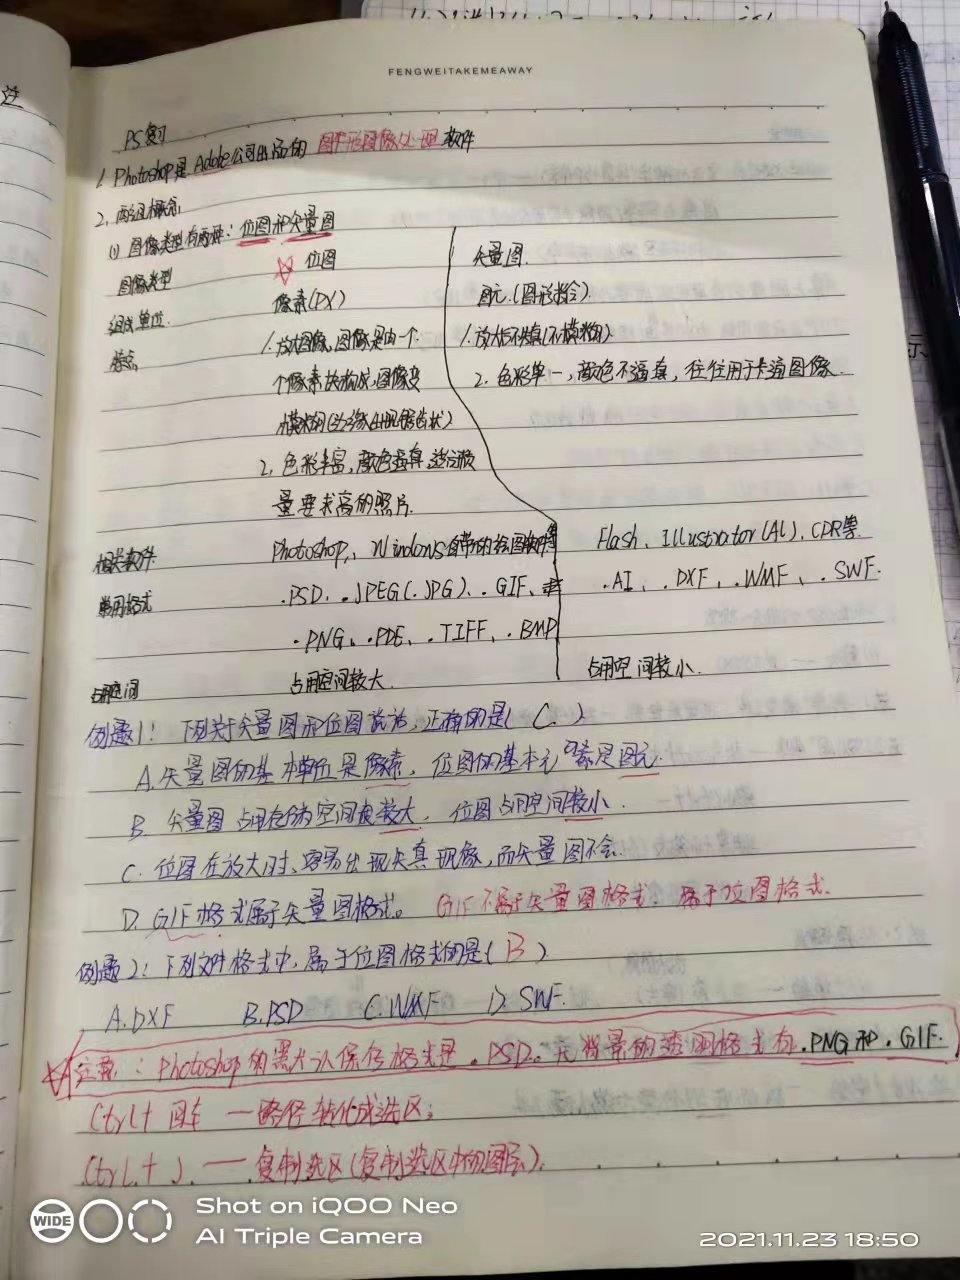 注
FENGWEITAKEMEAWAY
PS复习
1. Photoshop是Adobe公司出品的 图形图像处理 软件
2. 两组概念
(1) 图像类型有两种：位图和矢量图
图像类型 位图 矢量图.
组成单位. 像素(PX) 图元.(图形指令)
特点 1.放大图像,图像是由一个 1.放大后不失真(不模糊)
个像素块构成,图像变 2. 色彩单一,颜色不逼真,往往用于卡通图像.
模糊(边缘出现锯齿状)
2. 色彩丰富,颜色逼真,适合质
量要求高的照片.
相关软件 Photoshop, Windows自带的绘图软件等 Flash、Illustrator(AI)、CDR等.
常用格式 .PSD、.JPEG(.JPG)、.GIF、 .AI、.DXF、.WMF、.SWF.
.PNG、.PDE、.TIFF、.BMP
占用空间 占用空间较大. 占用空间较小.
例题1：下列关于矢量图和位图说法,正确的是( C. )
A.矢量图的基本单位是像素, 位图的基本元素是图元.
B. 矢量图占用存储空间较大, 位图占用空间较小.
C. 位图在放大时、容易出现失真现象,而矢量图不会.
D. GIF格式属于矢量图格式。 GIF不属于矢量图格式. 属于位图格式.
例题2：下列文件格式中,属于位图格式的是( B )
A.DXF B.PSD C.WMF D. SWF.
注意：Photoshop的默认保存格式是.PSD。无背景的透明格式有.PNG和.GIF.
Ctrl+回车 —路径转化成选区;
Ctrl+J —复制选区(复制选区中的图层).
WIDE
Shot on iQOO Neo
AI Triple Camera
2021.11.23 18:50